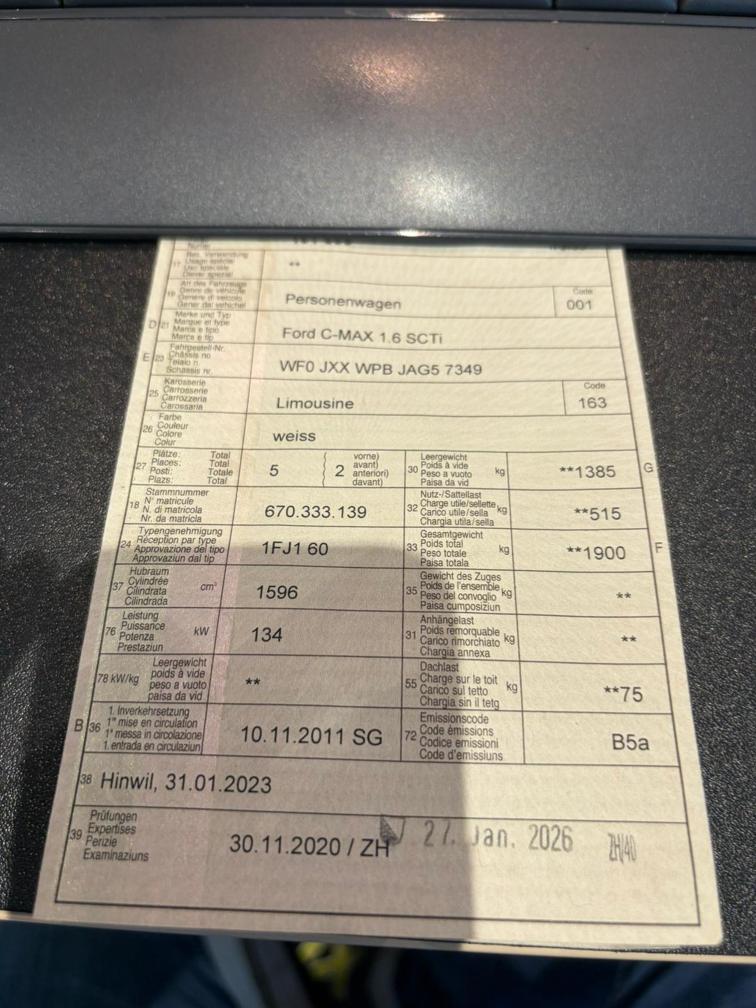 Numer
Bes. Verwendung
17 Usage spécial
Uso speciale
Diever spezial
**
Art des Fahrzeugs
19 Genre de véhicule
Genere di veicolo
Gener dal vehichel
Personenwagen
Code
001
Marke und Typ
D 21 Marque et type
Marca e tipo
Marca e tip
Ford C-MAX 1.6 SCTi
Fahrgestell-Nr.
E 23 Châssis no
Telaio n.
Schassis nr.
WF0 JXX WPB JAG5 7349
Karosserie
25 Carrosserie
Carrozzeria
Carossaria
Limousine
Code
163
Farbe
26 Couleur
Colore
Colur
weiss
Plätze: Total
27 Places: Total
Posti: Totale
Plazs: Total
5
vorne)
2 avant)
anteriori)
davant)
Leergewicht
30 Poids à vide kg
Peso a vuoto
Paisa da vid
**1385 G
Stammnummer
18 N° matricule
N. di matricola
Nr. da matricla
670.333.139
Nutz-/Sattellast
32 Charge utile/sellette kg
Carico utile/sella
Chargia utila/sella
**515
Typengenehmigung
24 Réception par type
Approvazione del tipo
Approvaziun dal tip
1FJ1 60
Gesamtgewicht
33 Poids total kg
Peso totale
Paisa totala
**1900 F
Hubraum
37 Cylindrée cm³
Cilindrata
Cilindrada
1596
Gewicht des Zuges
35 Poids de l'ensemble kg
Peso del convoglio
Paisa cumposiziun
**
Leistung
76 Puissance kW
Potenza
Prestaziun
134
Anhängelast
31 Poids remorquable kg
Carico rimorchiato
Chargia annexa
**
Leergewicht
78 kW/kg poids à vide
peso a vuoto
paisa da vid
**
Dachlast
55 Charge sur le toit kg
Carico sul tetto
Chargia sin il tetg
**75
1. Inverkehrsetzung
B 36 1re mise en circulation
1a messa in circolazione
1. entrada en circulaziun
10.11.2011 SG
Emissionscode
72 Code émissions
Codice emissioni
Code d'emissiuns
B5a
38 Hinwil, 31.01.2023
Prüfungen
39 Expertises
Perizie
Examinaziuns
30.11.2020 / ZH 27. Jan. 2026 ZH/40